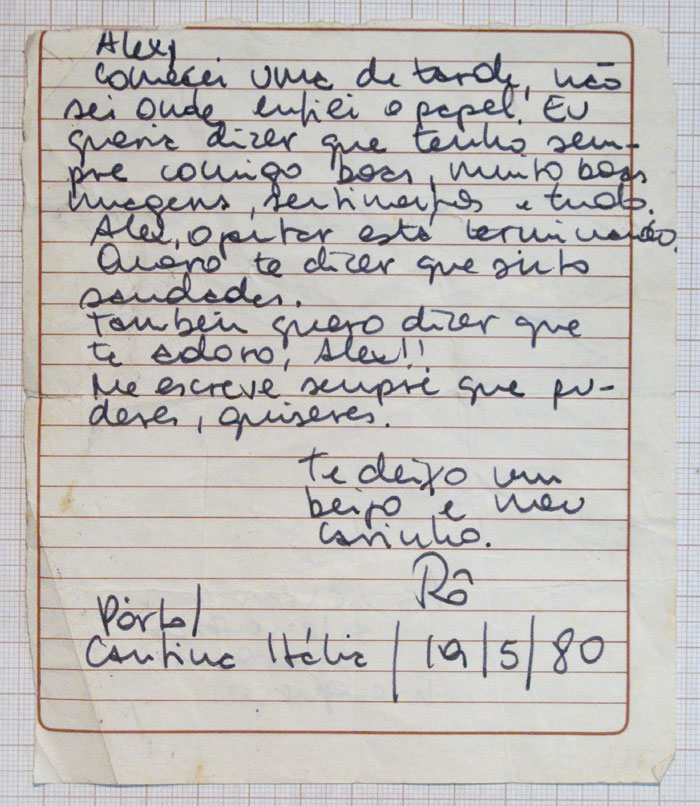 Alex,
comecei uma de tarde, não
sei onde enfiei o papel. Eu
queria dizer que tenho sem-
pre comigo boas, muito boas
imagens, sentimentos e tudo.
Alex, o jantar está terminando.
Quero te dizer que sinto
saudades.
Também quero dizer que
te adoro, Alex!!
Me escreve sempre que pu-
deres, quiseres.
Te deixo um
beijo e meu
carinho.
Rô
Pôrto/
Cantina Itália / 19/5/80